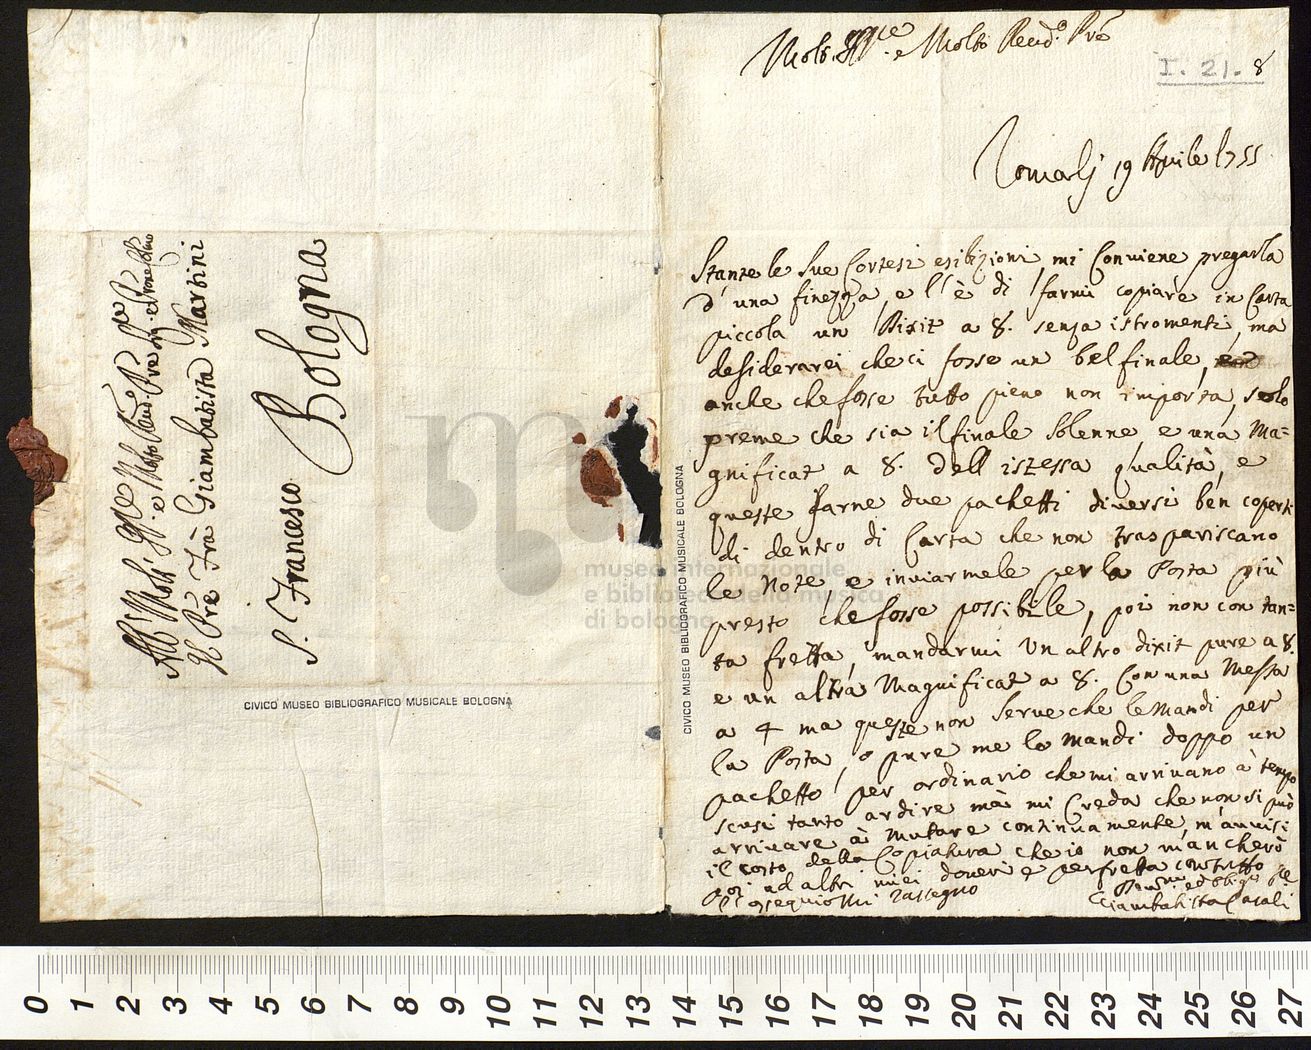 All' Molt' Ill.re e Molto Reud. Pre
Il Pre Frà Giambatista Martini
S. Francesco
Bologna
CIVICO MUSEO BIBLIOGRAFICO MUSICALE BOLOGNA
CIVICO MUSEO BIBLIOGRAFICO MUSICALE BOLOGNA
museo internazionale
e biblioteca della musica
di bologna
Molt. Ill.re e Molto Reud.o Pre
I. 21. 8
Roma li 19 Aprile 1755
Stante le Sue Cortesi esibizioni, mi Conviene pregarla
d'una finezza, e l'è di farmi copiare in Carta
piccola un Dixit a 8. senza istromenti, ma
desiderarei che ci fosse un bel finale,
anche che fosse tutto pieno non importa, solo
preme che sia il finale Solenne, e una Ma=
gnificat a 8. dell istessa qualità, e
queste farne due pachetti diversi ben coperti
di dentro di Carta che non traspariscano
le Note, e inviarmele per la Posta più
presto che fosse possibile, poi non con tan=
ta fretta, mandarmi Un altro dixit pure a 8.
e un altra Magnificat a 8. Con una Messa
a 4 ma queste non serve che le mandi per
la Posta, o pure me lo mandi doppo un
pachetto per ordinario che mi arrivano à tempo
scusi tanto ardire mà mi Creda che non si può
arrivare à mutare continuamente, m'avvisi
il costo della Copiatura che io non mancherò
poi ad altri miei doveri e perfretta con tutto
ossequio Mi rassegno
ed Obligo
Giambatista Casali
0 1 2 3 4 5 6 7 8 9 10 11 12 13 14 15 16 17 18 19 20 21 22 23 24 25 26 27